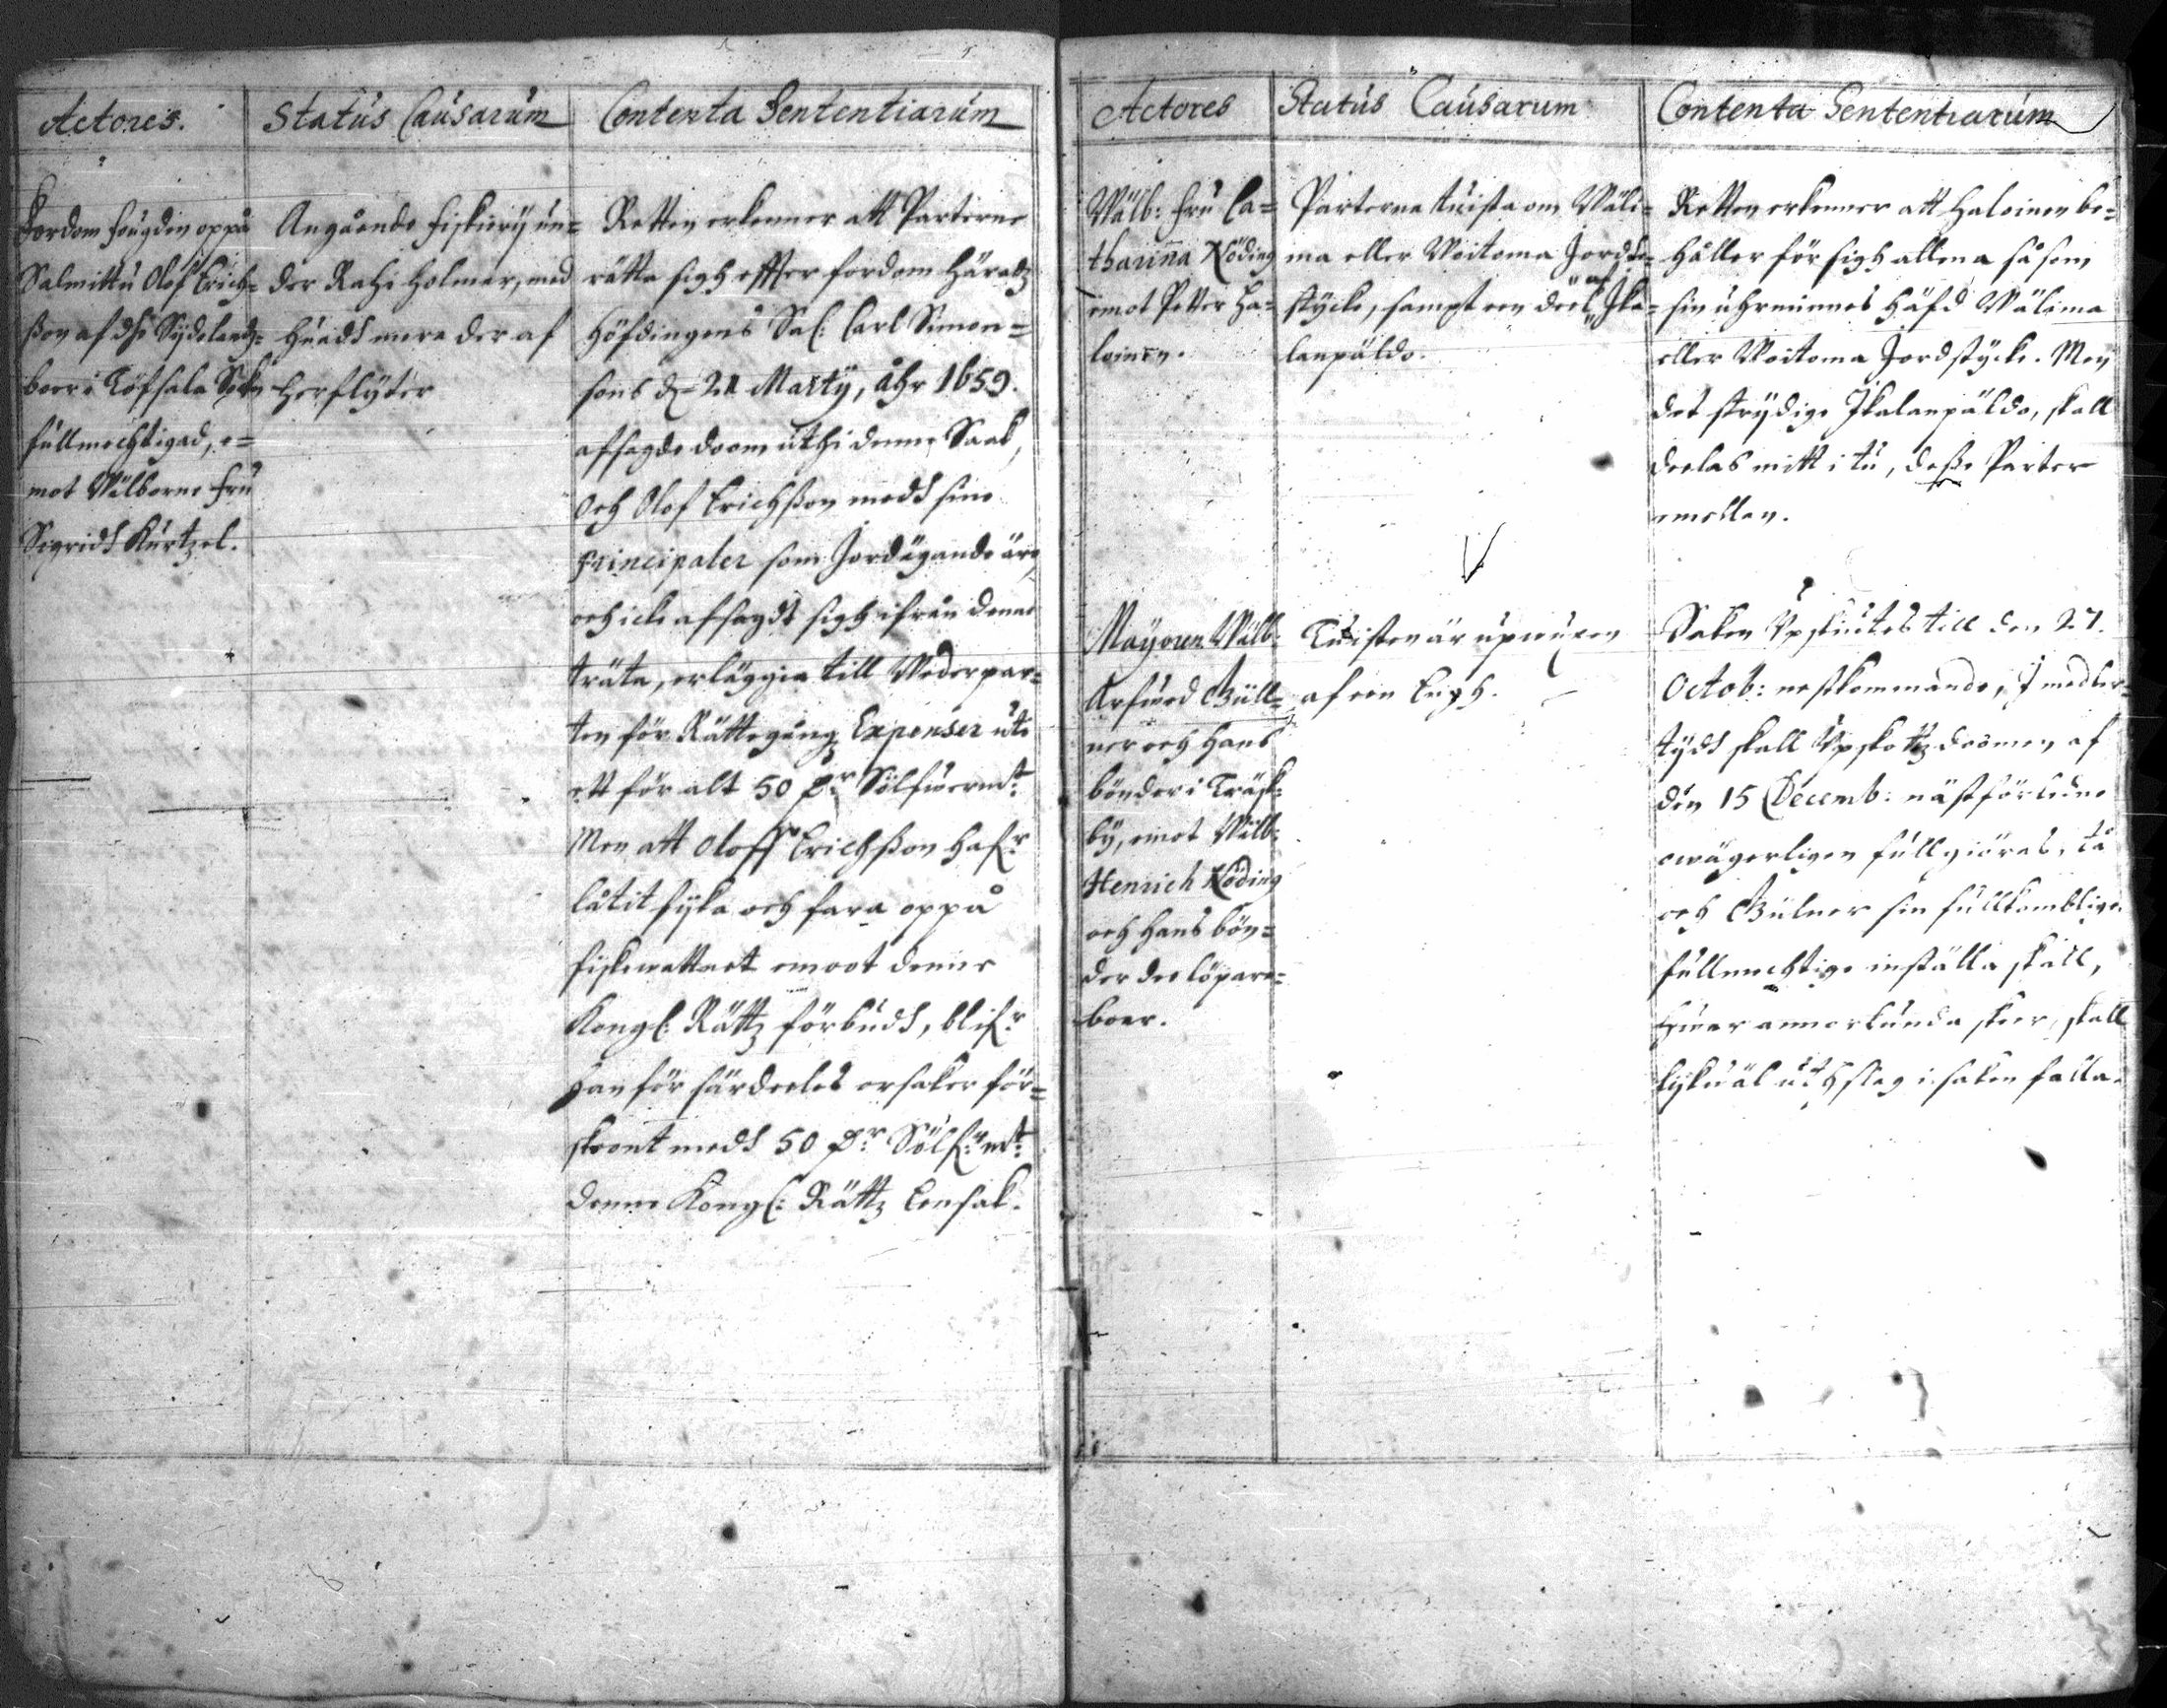 Actores.
Status Causarum
Contenta Sententiarum
Fordom fougden oppå
Salmittu Olof Erich=
ßon af dhe Sydelandz=
boer i Töfsala Sokn
fullmechtigad, e=
mot Wälborne Fru
Sigridh Kurtzel.
Angående fiskierij un=
der Rahi holmar, med
huadh mera der af
herflyter
Retten erkenner att Parterne
rätta sigh effter fordom Häradz
Höfdingens Sal: Carl Simon=
sons d. 21 Marty, åhr 1659.
afsagde doom uthi denne Saak,
Och Olof Erichßon medh sine
Principaler som Jordägande äre,
och icke afsagdt sigh ifrån denne
träta, erläggia till Wederpar=
ten för Rättegång Expenser uti
ett för alt 50 Dr Sölfwermt:
Men att Oloff Erichßon hafr
låtit fiska och fara oppå
fiskewattnet emoot denne
Kongl: Rättz förbudh, blifr
han för särdeeles orsaker för=
skont medh 50 Dr Sölf: mt:
denne Kongl: Rättz Ensak.
Actores
Status Causarum
Contenta Sententiarum
Wälb: Fru Ca=
tharina Nöding
emot Petter Ha=
loinen.
Parterna tuista om Wäli=
ma eller Woitoma Jorde=
stycke, sampt een deel af Ika=
lanpäldo.
Retten erkenner att Haloinen be=
håller för sigh allena såsom
sin uhrminnes Häfd Wälima
eller Woitoma Jordstycke. Men
det strydige Ikalanpäldo, skall
deelas mitt i tu, deße Parter
emellan.
Mayoren Wälb:
Arfwed Güll=
ner och hans
bönder i Träsk=
by, emot Wälb:
Henrich Nöding
och hans bön=
der dee Löpare=
boer.
Tuisten är upwuxen
af een Engh.
Saken Upskiutes till den 27.
Octob: nestkommande, I medler=
tydh skall Upskottz doomen af
den 15 Decemb: näst förledne
owägerligen fullgiöras, tå
och Gülner sin fullkomblige
fullmechtige inställa skall,
huar annorlunda skeer, skall
lijkwäl uthslag i saken falla.